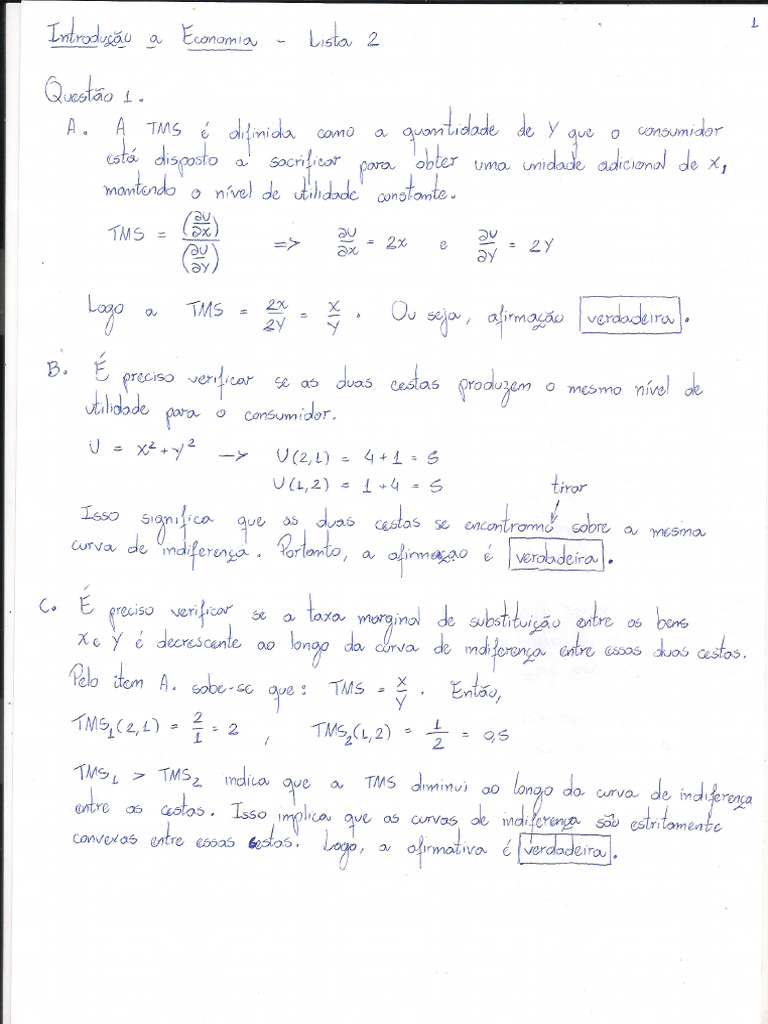 1
Introdução a Economia - Lista 2
Questão 1.
A. A TMS é difinida como a quantidade de Y que o consumidor
está disposto a sacrificar para obter uma unidade adicional de x,
mantendo o nível de utilidade constante.
TMS = (∂U/∂x)/(∂U/∂Y) => ∂U/∂x = 2x e ∂U/∂Y = 2Y
Logo a TMS = 2x/2Y = x/Y . Ou seja, afirmação verdadeira.
B. É preciso verificar se as duas cestas produzem o mesmo nível de
utilidade para o consumidor.
U = x² + y² -> U(2,1) = 4 + 1 = 5
U(1,2) = 1 + 4 = 5
tirar
Isso significa que as duas cestas se encontram sobre a mesma
curva de indiferença. Portanto, a afirmaçao é verdadeira.
C. É preciso verificar se a taxa marginal de substituição entre os bens
x e Y é decrescente ao longo da curva de indiferença entre essas duas cestas.
Pelo item A. sabe-se que: TMS = x/Y . Então,
TMS₁(2,1) = 2/1 = 2 , TMS₂(1,2) = 1/2 = 0,5
TMS₁ > TMS₂ indica que a TMS diminui ao longo da curva de indiferença
entre as cestas. Isso implica que as curvas de indiferença são estritamente
convexas entre essas cestas. Logo, a afirmativa é verdadeira.